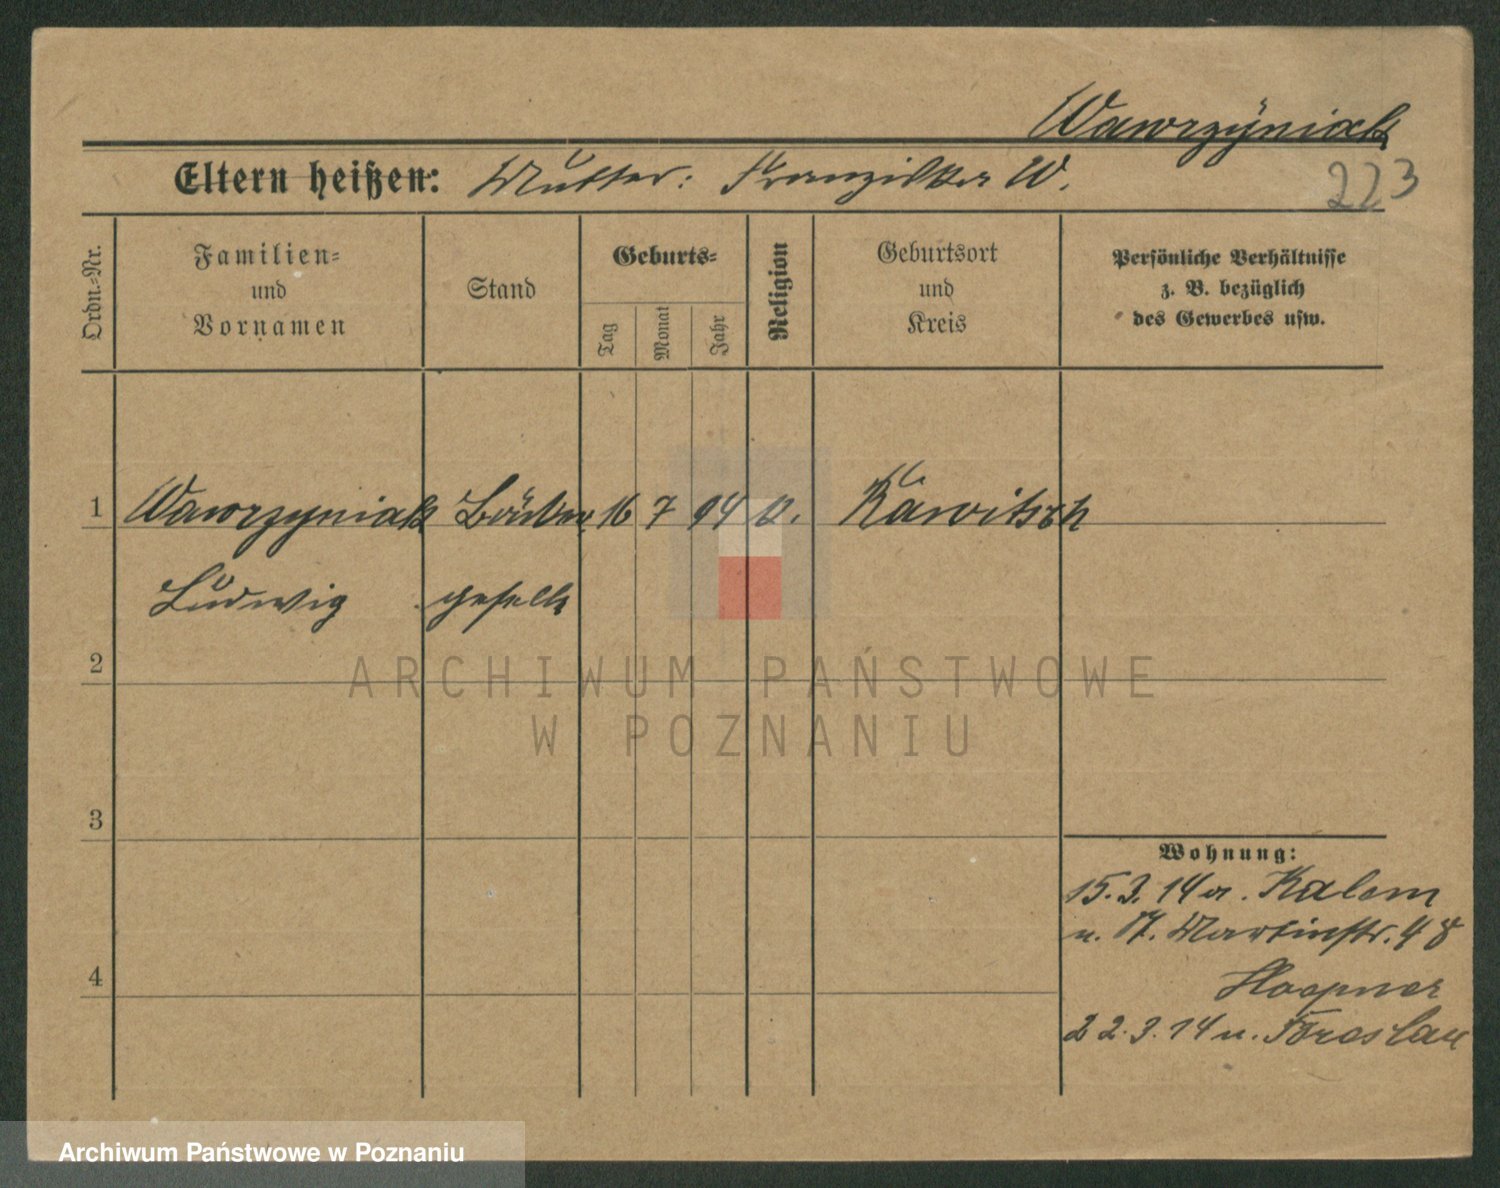 Wawrzyniak
Eltern heißen: Mutter: Franziska W.
223
Ordn.-Nr.
Familien-
und
Vornamen
Stand
Geburts-
Tag
Monat
Jahr
Religion
Geburtsort
und
Kreis
Persönliche Verhältnisse
z. B. bezüglich
des Gewerbes usw.
1 Wawrzyniak Bäcker 16 7 94 k. Rawitsch
Ludwig geselle
2
3
4
Wohnung:
15.3.14 a. Kalom
n. St. Martinstr. 48
Hoepner
22.3.14 n. Breslau
ARCHIWUM PAŃSTWOWE
W POZNANIU
Archiwum Państwowe w Poznaniu